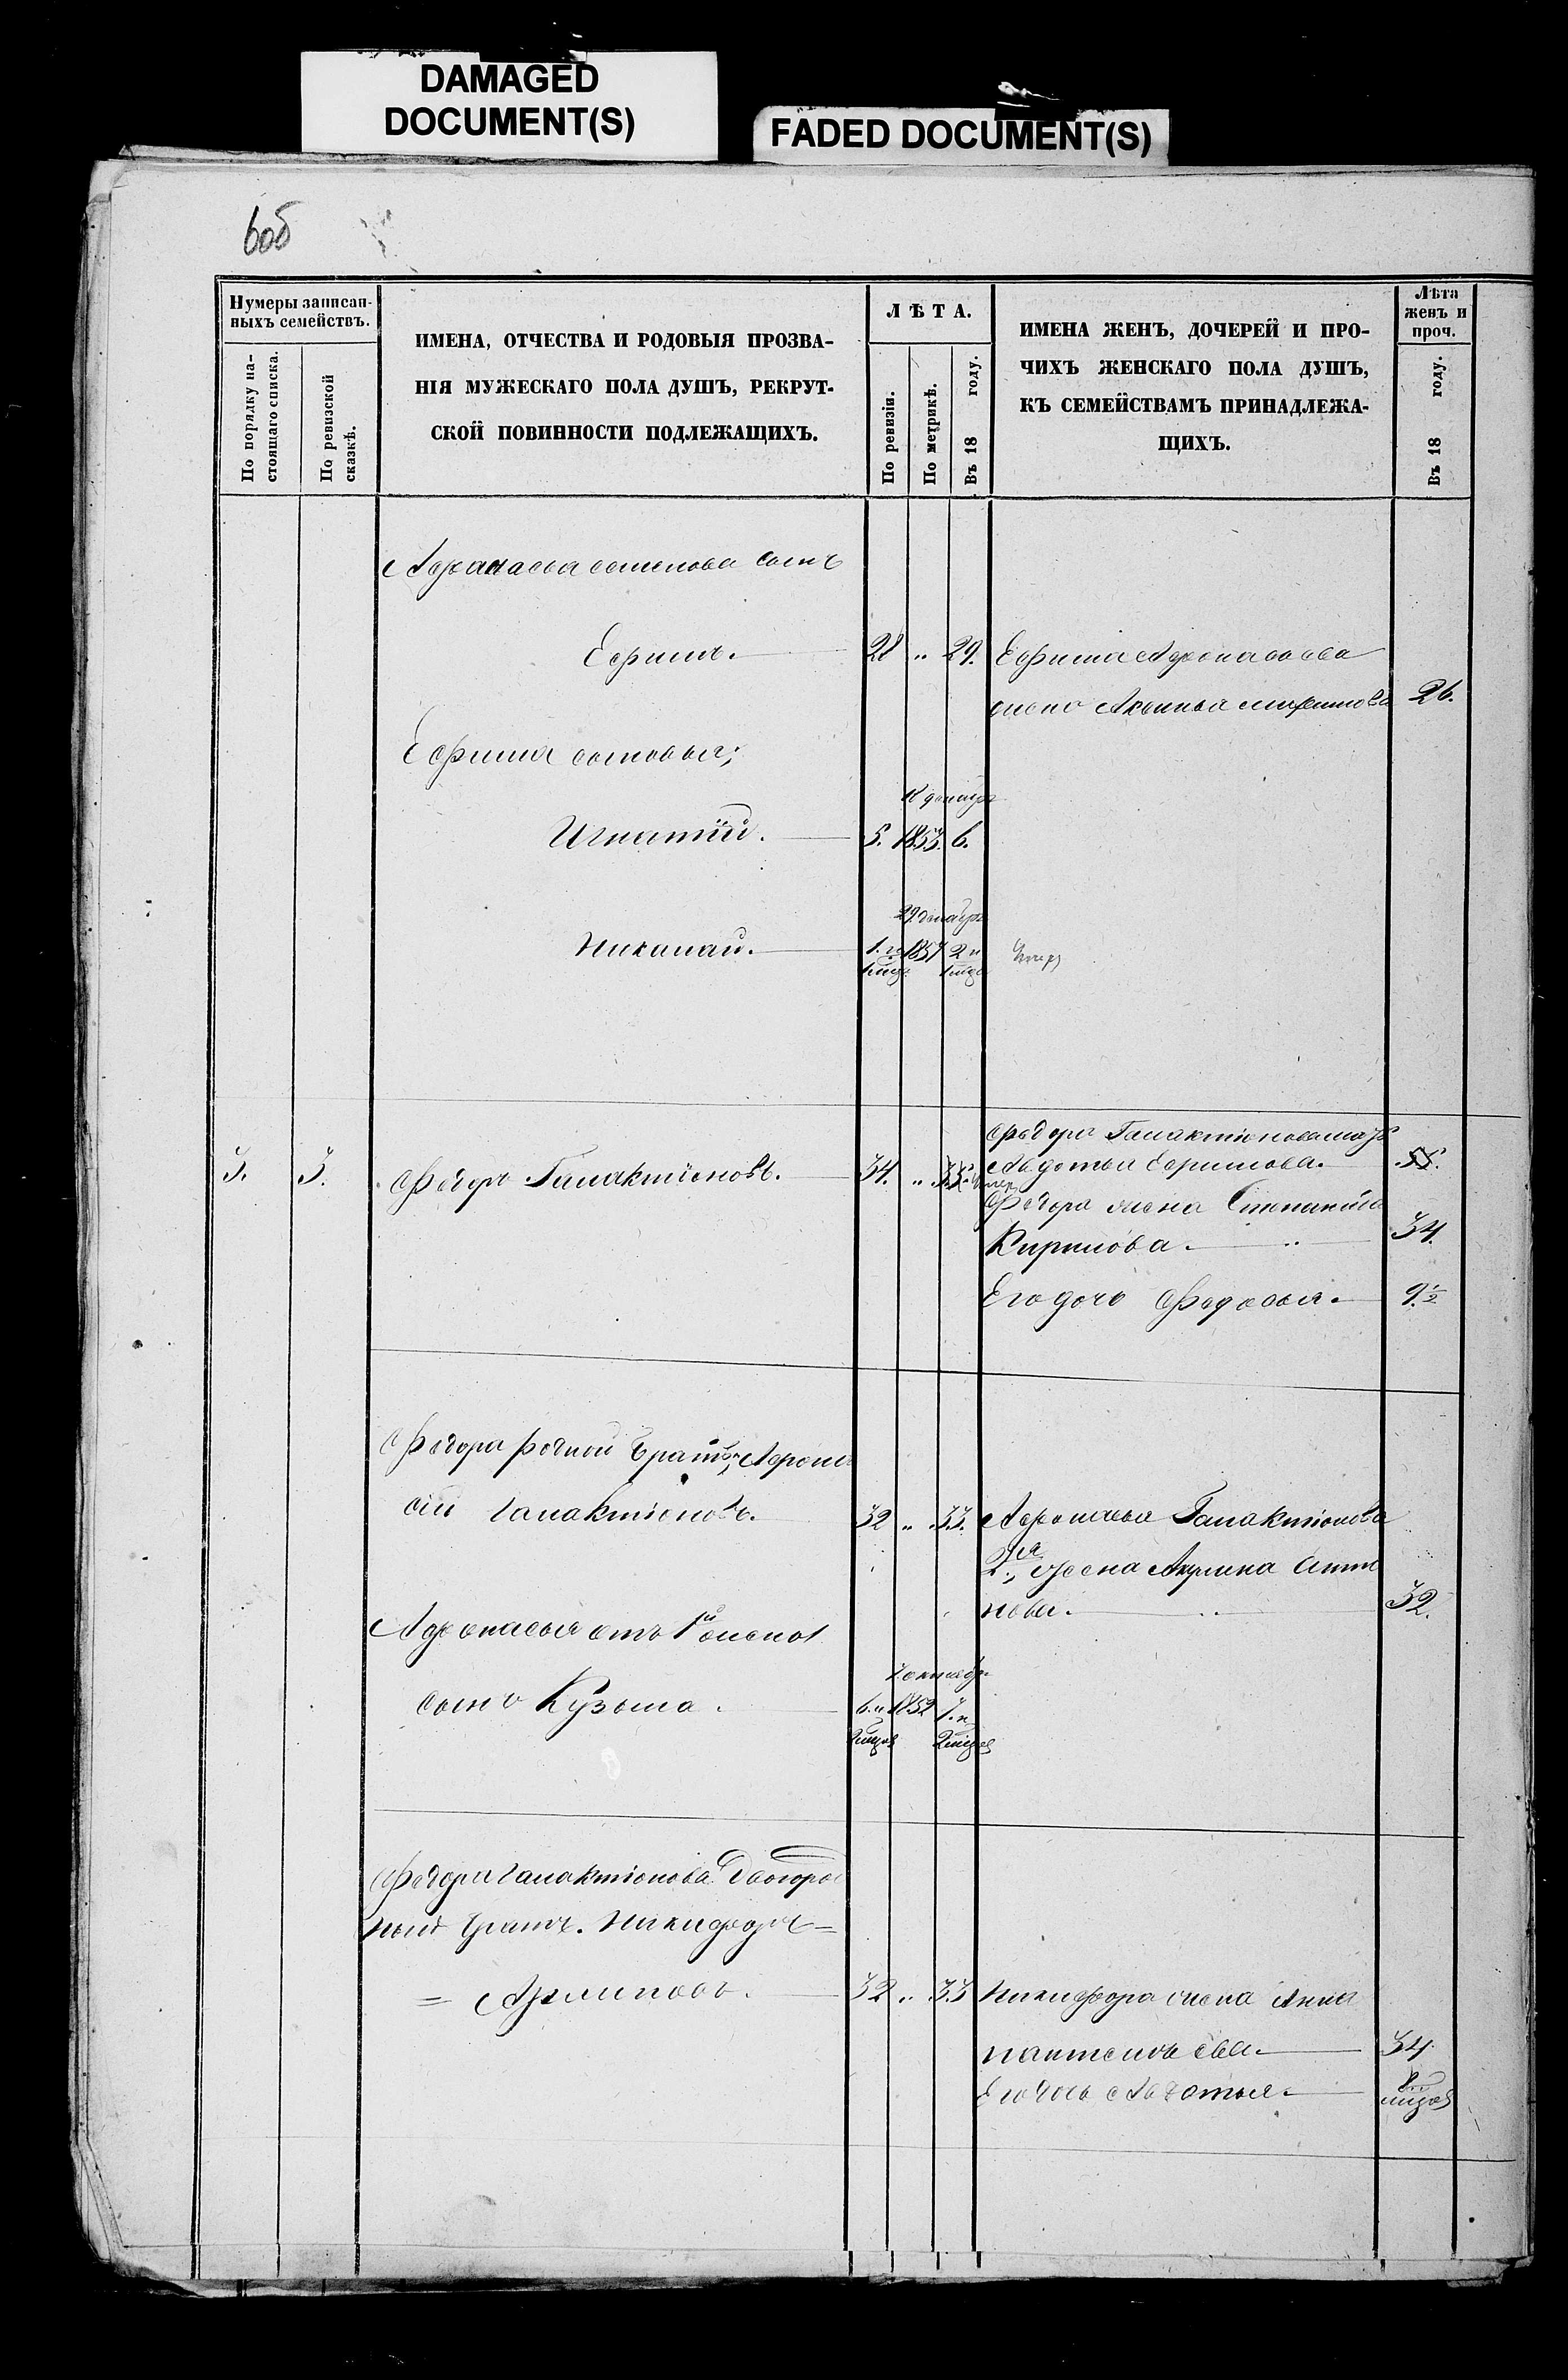 DAMAGED
DOCUMENT(S)
FADED DOCUMENT(S)
6об
Нумеры записан-
ныхъ семействъ.
По порядку на-
стоящаго списка.
По ревизской
сказкѣ.
ИМЕНА, ОТЧЕСТВА И РОДОВЫЯ ПРОЗВА-
НІЯ МУЖЕСКАГО ПОЛА ДУШЪ, РЕКРУТ-
СКОЙ ПОВИННОСТИ ПОДЛЕЖАЩИХЪ.
ЛѢТА.
По ревизіи.
По метрикѣ.
Въ 18 году.
ИМЕНА ЖЕНЪ, ДОЧЕРЕЙ И ПРО-
ЧИХЪ ЖЕНСКАГО ПОЛА ДУШЪ,
КЪ СЕМЕЙСТВАМЪ ПРИНАДЛЕЖА-
ЩИХЪ.
Лѣта
женъ и
проч.
Въ 18 году.
Афанасья семенова сынъ
Ефимъ. 28 „ 29. Ефима Афонасьева
жена Аксинья 26.
Ефима сыновья;
18 декабря
Игнатій. 5. 1853. 6.
29 декабря
Николай. 1. и 1857 2 и
1 мѣс. 1 мѣс.
Федора Галактіонова мать
3. 3. Федоръ Галактіоновъ. 34. „ 35. Авдотья Ефимова. 55.
умер.
Федора жена Степанида
Кирилова. „ 34.
Его дочь Федосья. 9 1/2
Федора родной братъ, Афона
сій Галактіоновъ. 32 „ 33. Афонасья Галактіонова
2я, жена Акулина Анти
пова. 32.
Афонасья отъ 1й жены
7 октября
сынъ Кузьма. 6. и 1852 7. и
2 мѣсяц 2 мѣсяц
Федора Галактіонова Двоюрод
ный братъ. Никифоръ =
= Архиповъ. 32 „ 33 Никифора жена Анна
Пантелѣева. 34
Его дочь Авдотья. мѣсяц